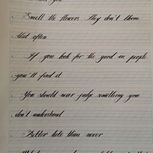 Smell the flowers. They don't bloom
that often
If you look for the good in people
you'll find it
You should never judge something you
don't understand
Better late than never